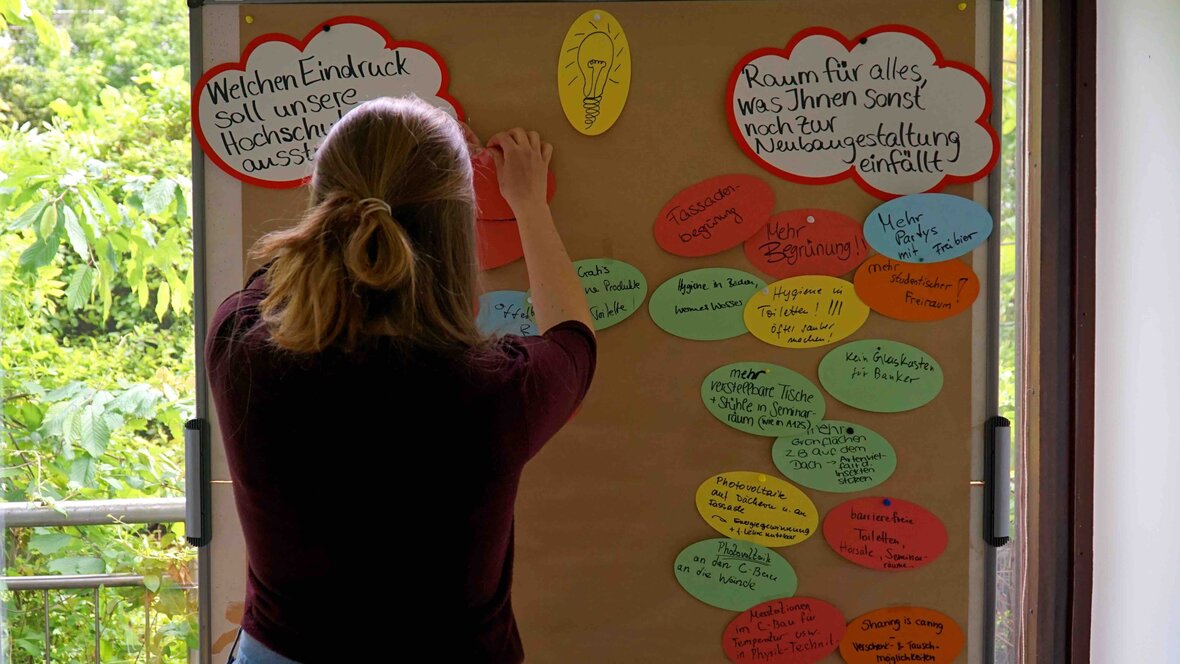 Welchen Eindruck
soll unsere
Hochschul
ausst
Raum für alles,
was Ihnen sonst
noch zur
Neubaugestaltung
einfällt
Fassaden-
begrünung
Mehr
Begrünung!!
Mehr
Partys
mit Freibier
mehr
studentischer
Freiraum?
Gratis
Produkte
Toilette
Hygiene in Böden,
warmes Wasser
Hygiene in
Toiletten! !!!
öfter sauber
machen!
Kein Glaskasten
für Banker
mehr
verstellbare Tische
+ Stühle in Seminar-
raum (wie in A125)
mehr
Grünflächen
z.B auf dem
Dach → Artenviel-
falt d.
Insekten
stützen
Photovoltaik
auf Dächern u. an
Fassade
→ Energiegewinnung
+ f. Lehre nutzbar
barrierefreie
Toiletten,
Hörsäle, Seminar-
räume...
Photovoltaik
an den C-Bau
an die Wände
Messstationen
im C-Bau für
Temperatur usw.
in Physik-Technik
Sharing is caring
→
Verschenk- & Tausch-
möglichkeiten